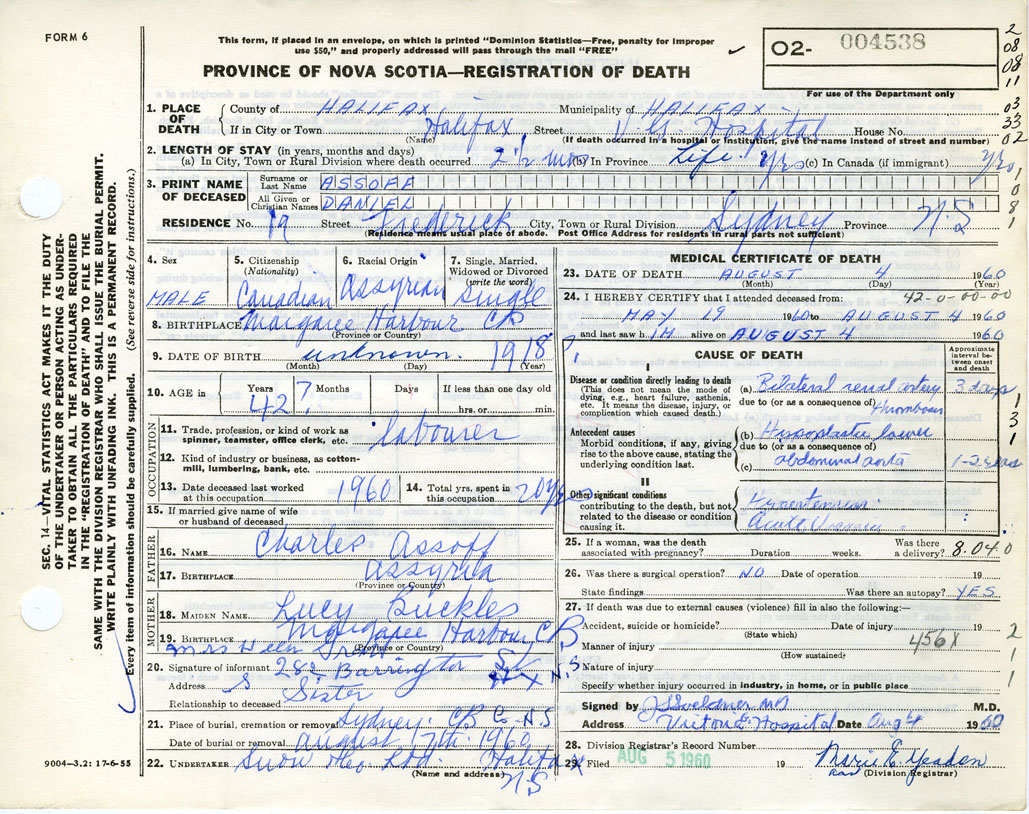 FORM 6
This form, if placed in an envelope, on which is printed "Dominion Statistics—Free, penalty for improper
use $50," and properly addressed will pass through the mail "FREE"
PROVINCE OF NOVA SCOTIA—REGISTRATION OF DEATH
O2- 004538
For use of the Department only
2
08
08
11
03
33
02
1. PLACE OF DEATH
County of HALIFAX Municipality of HALIFAX
If in City or Town Halifax Street V.G. Hospital House No.
(Name) (If death occurred in a hospital or institution, give the name instead of street and number)
2. LENGTH OF STAY (in years, months and days)
(a) In City, Town or Rural Division where death occurred 2 1/2 mos (b) In Province Life yrs (c) In Canada (if immigrant) yrs
3. PRINT NAME OF DECEASED
Surname or Last Name ASSOFF
All Given or Christian Names DANIEL
RESIDENCE No. 19 Street Frederick City, Town or Rural Division Sydney Province N.S
(Residence means usual place of abode. Post Office Address for residents in rural parts not sufficient)
4. Sex
MALE
5. Citizenship
(Nationality)
Canadian
6. Racial Origin
Assyrian
7. Single, Married,
Widowed or Divorced
(write the word)
Single
8. BIRTHPLACE Margaree Harbour CB
(Province or Country)
9. DATE OF BIRTH unknown. 1918
(Month) (Day) (Year)
10. AGE in Years Months Days If less than one day old
42 ? hrs. or min.
OCCUPATION
11. Trade, profession, or kind of work as
spinner, teamster, office clerk, etc. labourer
12. Kind of industry or business, as cotton-
mill, lumbering, bank, etc.
13. Date deceased last worked
at this occupation 1960
14. Total yrs. spent in
this occupation 20 yrs
15. If married give name of wife
or husband of deceased
FATHER
16. NAME Charles Assoff
17. BIRTHPLACE Assyria
(Province or Country)
MOTHER
18. MAIDEN NAME Lucy Buckles
19. BIRTHPLACE Margaree Harbour CB
(Province or Country)
Mrs Helen
20. Signature of informant 282 Barrington St
Address Hfx N.S
Relationship to deceased Sister
21. Place of burial, cremation or removal Sydney CB Co-N.S
Date of burial or removal August 7th 1960
22. UNDERTAKER Snow Ltd. Halifax
(Name and address) N.S
MEDICAL CERTIFICATE OF DEATH
23. DATE OF DEATH AUGUST 4 1960
(Month) (Day) (Year)
24. I HEREBY CERTIFY that I attended deceased from: 42-0-00-00
MAY 19 1960 to AUGUST 4 1960
and last saw h IM alive on AUGUST 4 1960
CAUSE OF DEATH
Approximate
interval be-
tween onset
and death
I
Disease or condition directly leading to death
(This does not mean the mode of
dying, e.g., heart failure, asthenia,
etc. It means the disease, injury, or
complication which caused death.)
(a) Bilateral renal artery 3 days
due to (or as a consequence of) thrombosis
Antecedent causes
Morbid conditions, if any, giving
rise to the above cause, stating the
underlying condition last.
(b) Hypoplastic lower
due to (or as a consequence of)
(c) abdominal aorta 1-2 years
II
Other significant conditions
contributing to the death, but not
related to the disease or condition
causing it.
Hypertension
Acute Uraemia
1
3
1
25. If a woman, was the death
associated with pregnancy? Duration weeks. Was there
a delivery? 8.04.0
26. Was there a surgical operation? NO Date of operation 19
State findings Was there an autopsy? YES
27. If death was due to external causes (violence) fill in also the following:—
Accident, suicide or homicide? Date of injury 19
(State which)
Manner of injury 456X
(How sustained)
Nature of injury
Specify whether injury occurred in industry, in home, or in public place
2
1
1
Signed by M.D.
Address Victoria G. Hospital Date Aug 4 1960
28. Division Registrar's Record Number
29. Filed AUG 5 1960 19 Marie E.
(Division Registrar)
SEC. 14—VITAL STATISTICS ACT MAKES IT THE DUTY
OF THE UNDERTAKER OR PERSON ACTING AS UNDER-
TAKER TO OBTAIN ALL THE PARTICULARS REQUIRED
IN THE "REGISTRATION OF DEATH" AND TO FILE THE
SAME WITH THE DIVISION REGISTRAR WHO SHALL ISSUE THE BURIAL PERMIT.
WRITE PLAINLY WITH UNFADING INK. THIS IS A PERMANENT RECORD.
Every item of information should be carefully supplied. (See reverse side for instructions.)
9004—3.2: 17-6-55